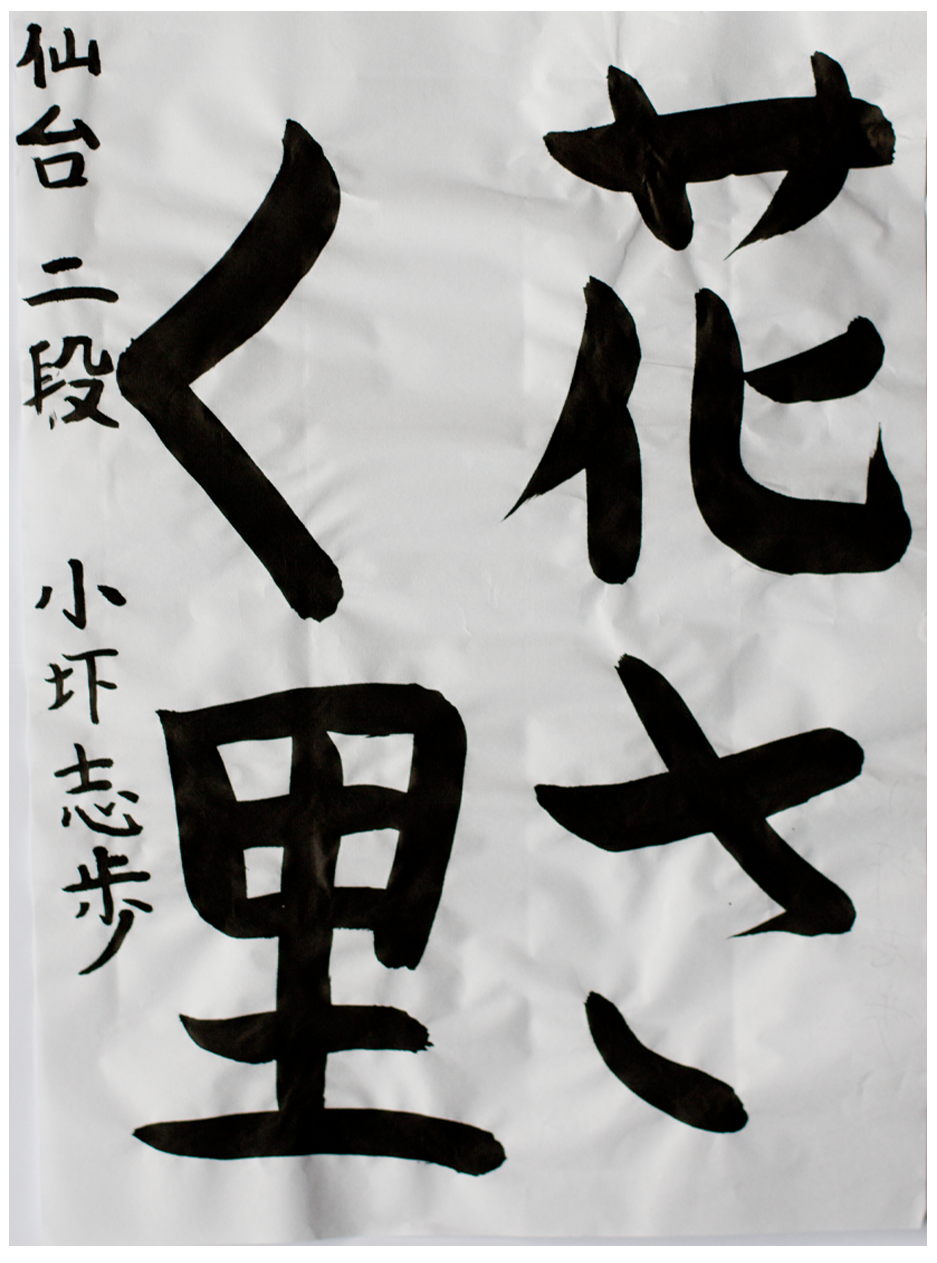 花さ
く里
仙台 二段 小圷志歩